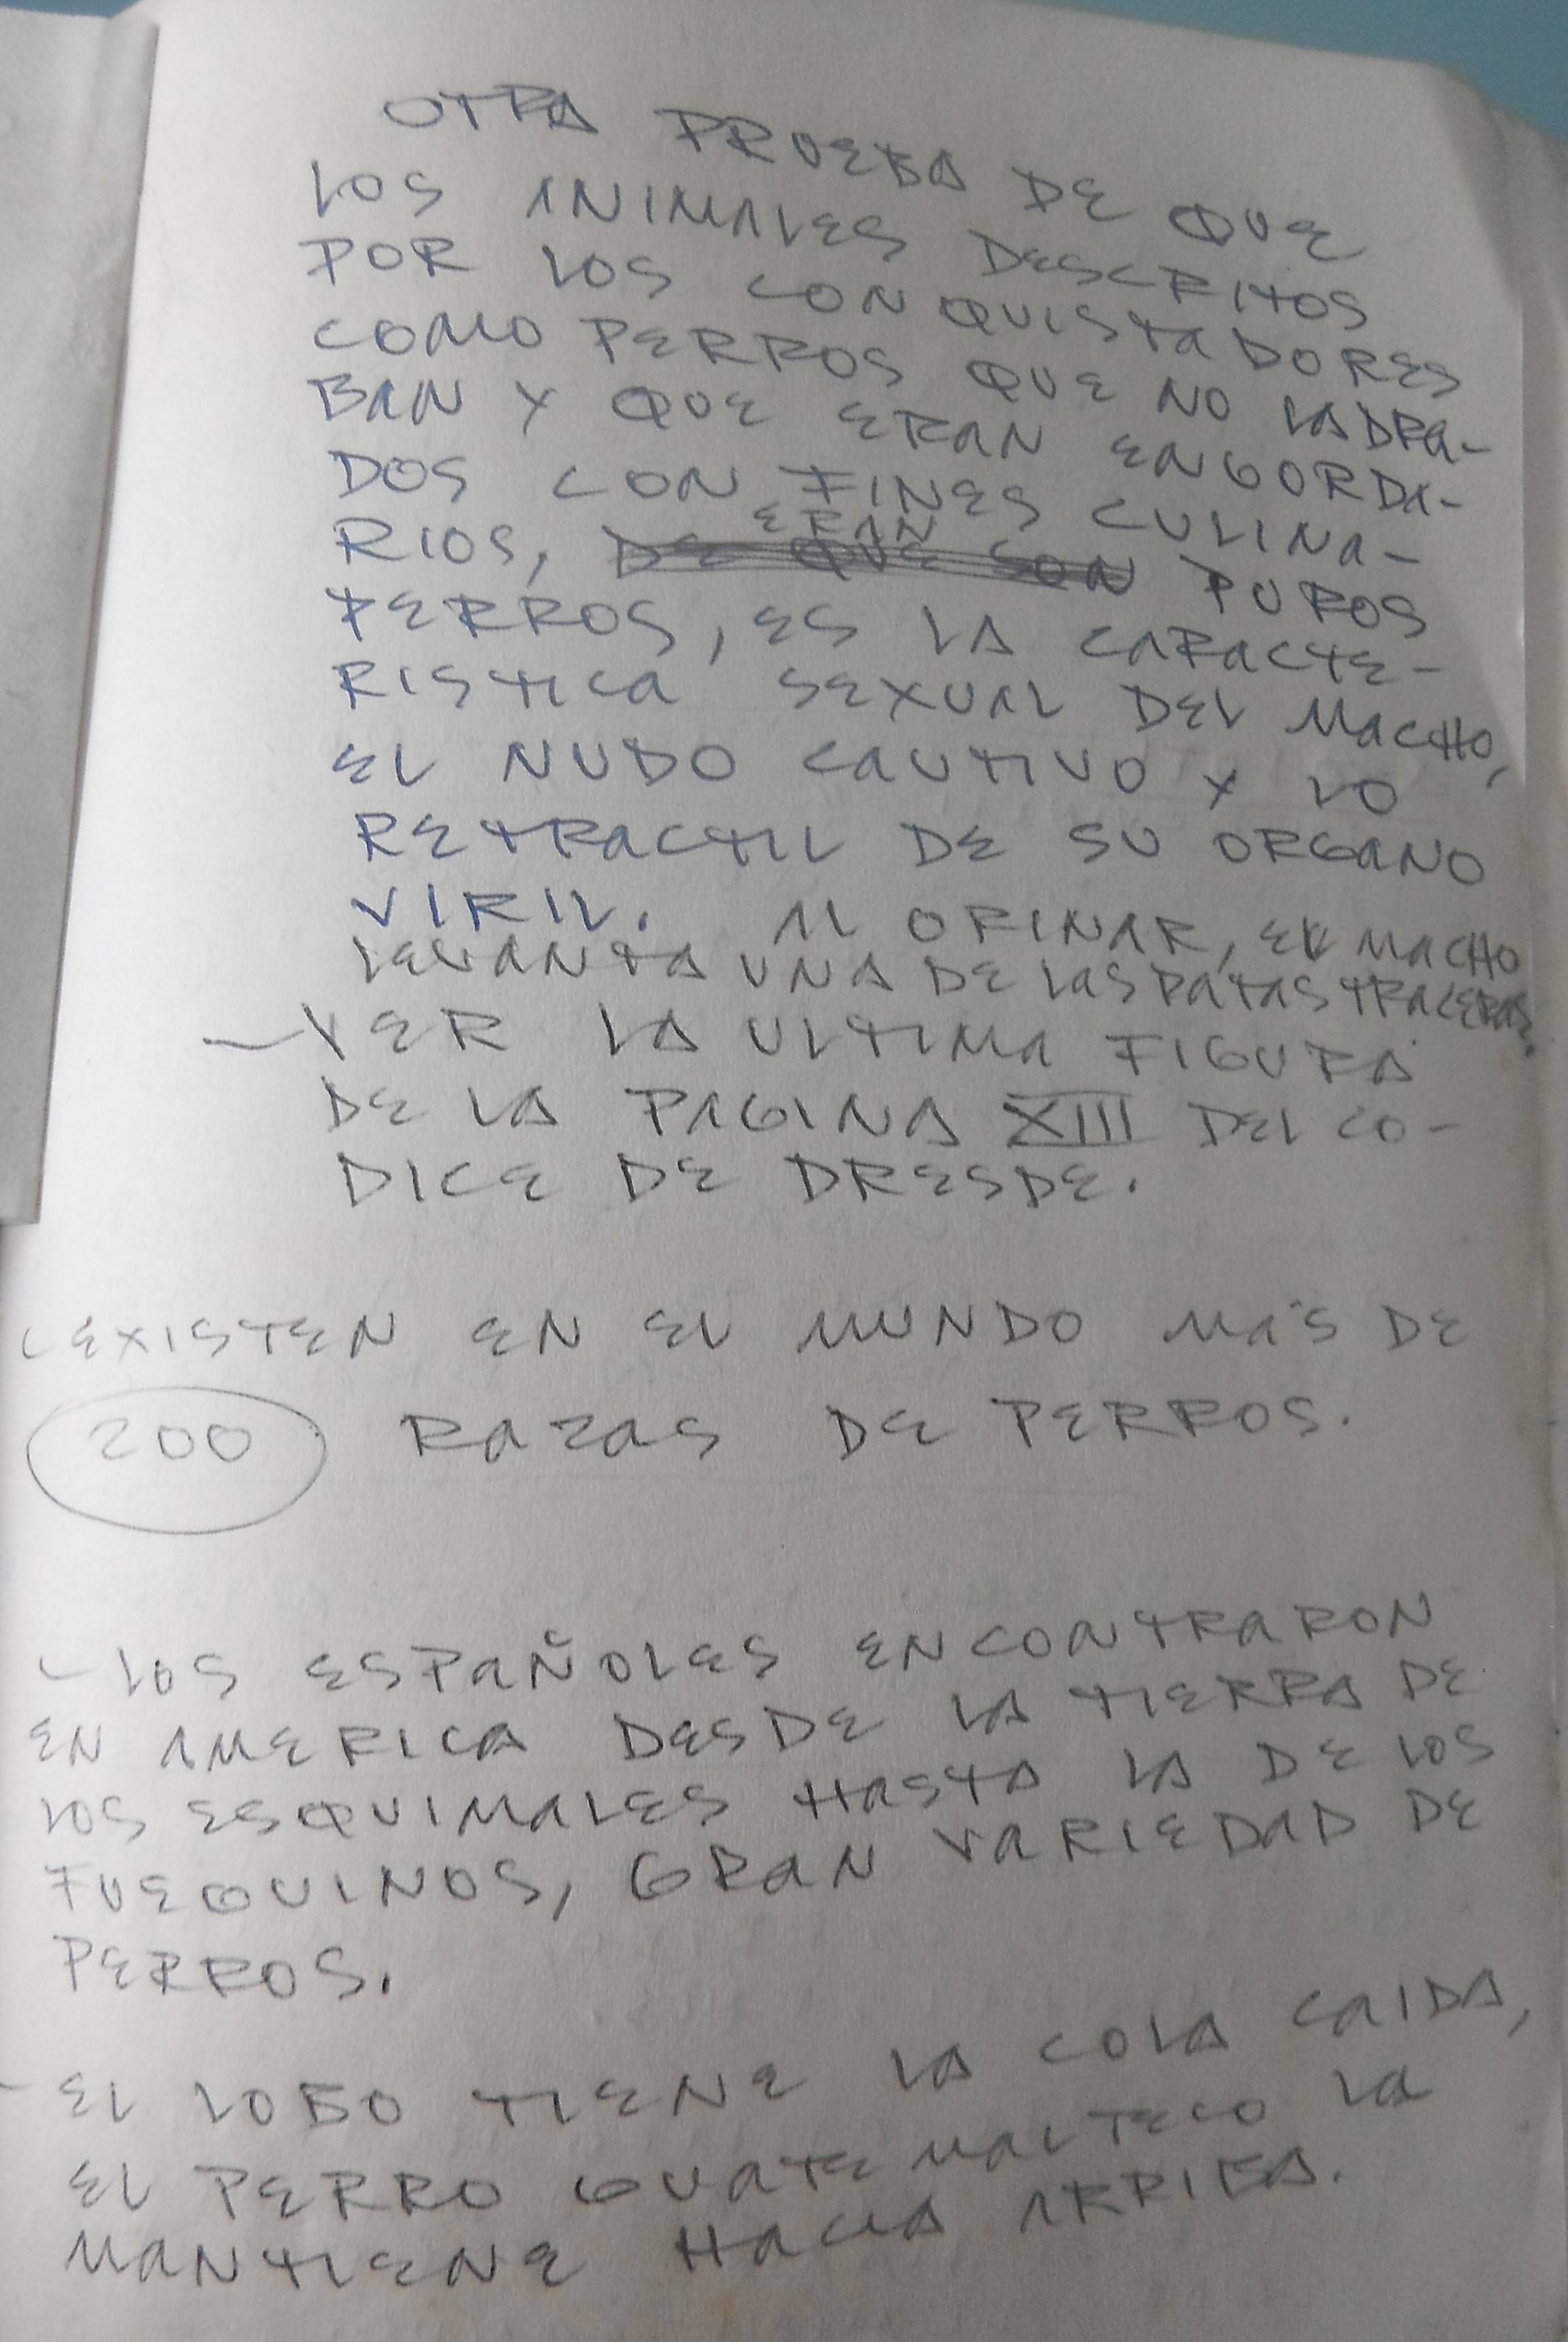 OTRA PRUEBA DE QUE
LOS ANIMALES DESCRITOS
POR LOS CONQUISTADORES
COMO PERROS QUE NO LADRA-
BAN Y QUE ERAN ENGORDA-
DOS CON FINES CULINA-
ERAN
RIOS, DE QUE SON PUROS
PERROS, ES LA CARACTE-
RISTICA SEXUAL DEL MACHO,
EL NUDO CAUTIVO Y LO
RETRACTIL DE SU ORGANO
VIRIL. AL ORINAR, EL MACHO
LEVANTA UNA DE LAS PATAS TRACERAS.
— VER LA ULTIMA FIGURA
DE LA PAGINA XIII DEL CO-
DICE DE DRESDE.
EXISTEN EN EL MUNDO MÁS DE
200 RAZAS DE PERROS.
- LOS ESPAÑOLES ENCONTRARON
EN AMERICA DESDE LA TIERRA DE
LOS ESQUIMALES HASTA LA DE LOS
FUEGUINOS, GRAN VARIEDAD DE
PERROS.
- EL LOBO TIENE LA COLA CAIDA,
EL PERRO GUATEMALTECO LA
MANTIENE HACIA ARRIBA.